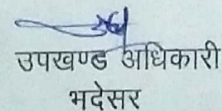 उपखण्ड अधिकारी
भदेसर